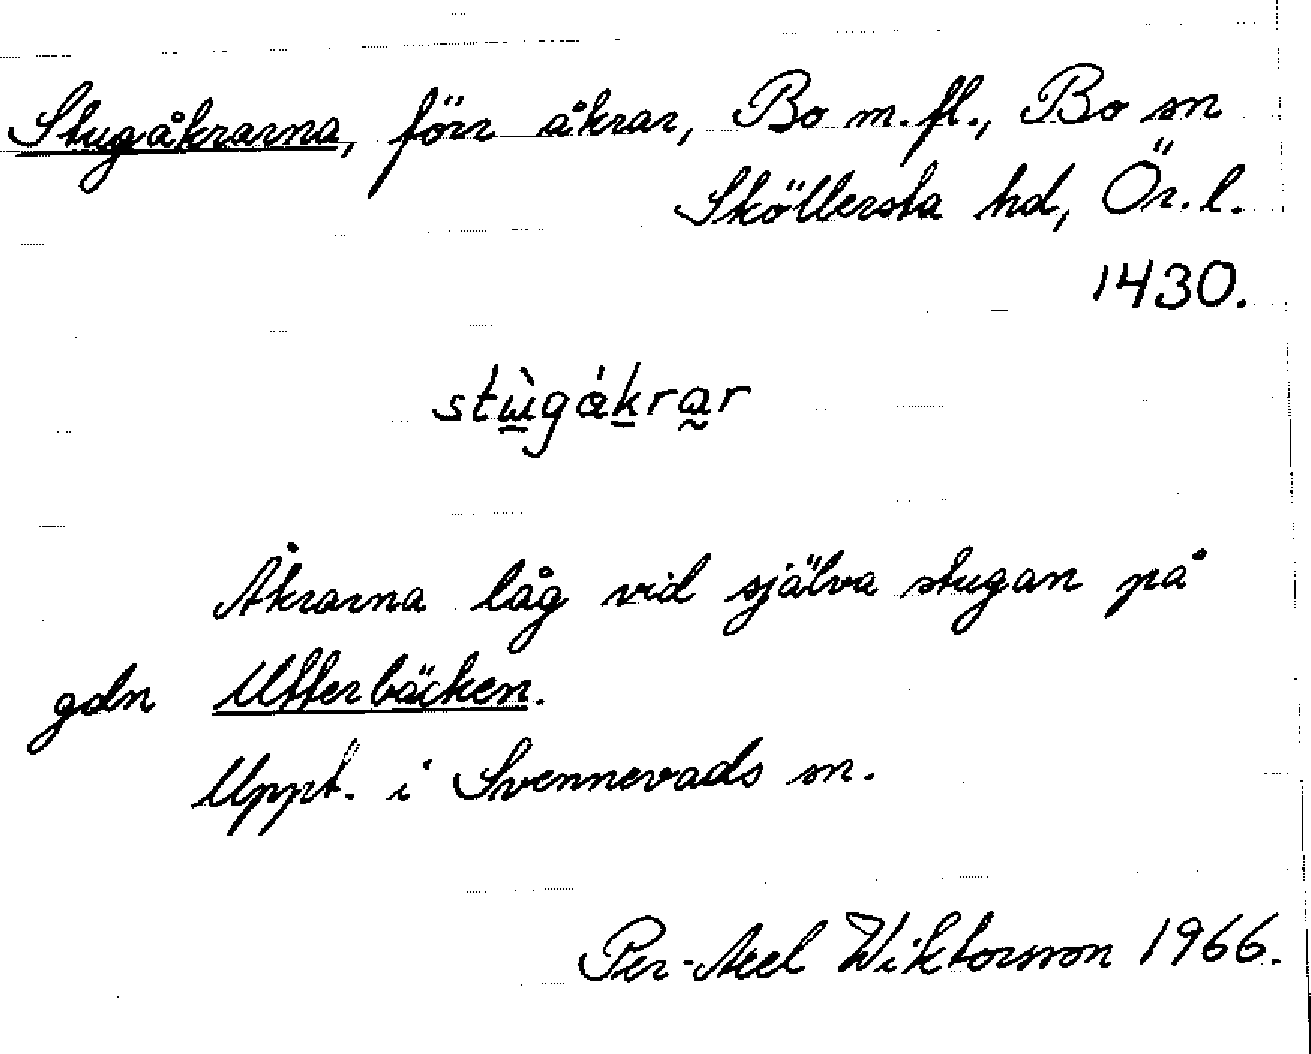 Stugåkrarna, förr åkrar, Bo m.fl., Bo sn
Sköllersta hd, Ör. l.
1430.
stùgákrar
Åkrarna låg vid själva stugan på
gdn Utterbäcken.
Uppt. i Svennevads sn.
Per-Axel Wiktorsson 1966.